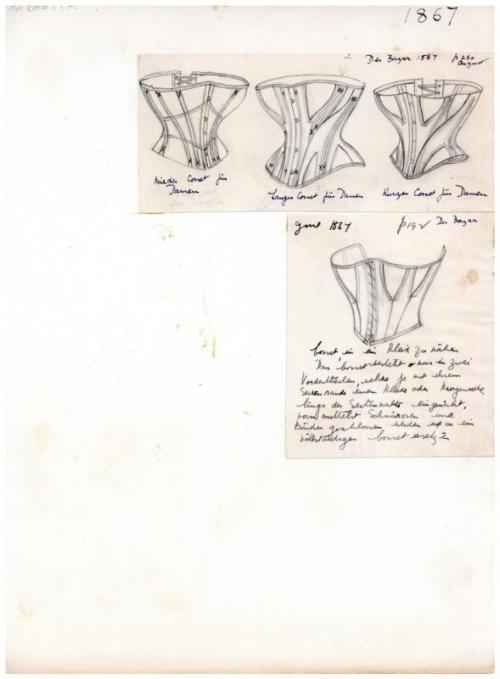 1867
Der Bazar 1867 p 250
August
Mieder Corset für
Damen
Langes Corset für Damen
Kurzes Corset für Damen
1867 p 192 Der Bazar
Corset in ein Kleid zu nähen
Das Corset besteht nur in zwei
Vordertheilen, welche je mit ihrem
einem Kleides oder
längs der Seitennaht eingenäht,
vorn mittelst Schnüren und
Bänder geschlossen werden u so ein
vollständiges Corset